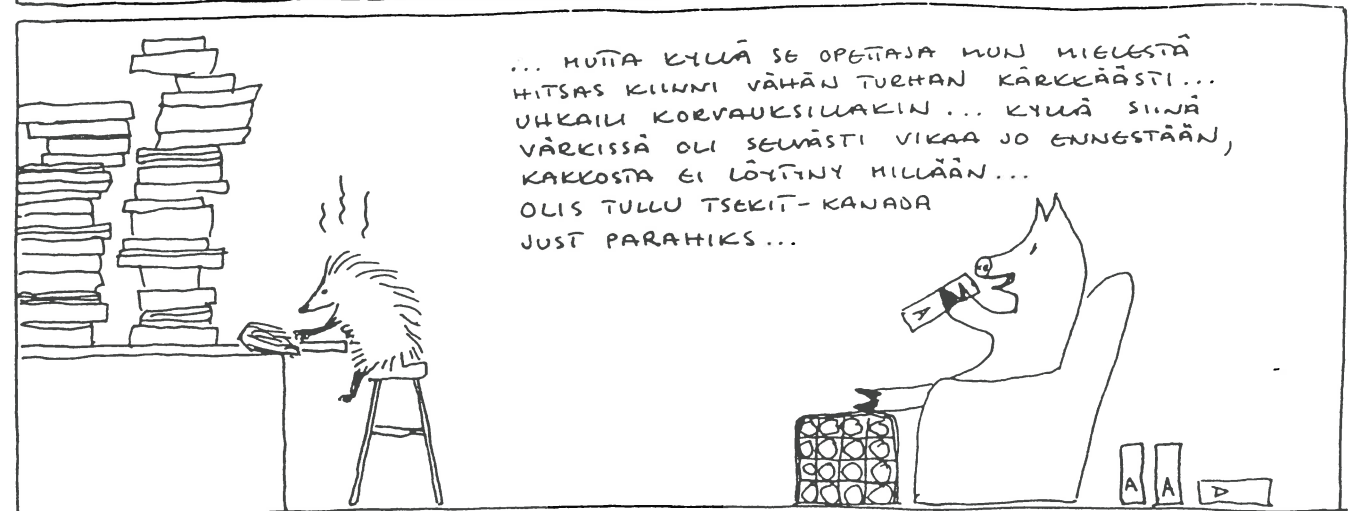 ... MUTTA KYLLÄ SE OPETTAJA MUN MIELESTÄ
HITSAS KIINNI VÄHÄN TURHAN KÄRKKÄÄSTI...
UHKAILI KORVAUKSILLAKIN... KYLLÄ SIINÄ
VÄRKISSÄ OLI SELVÄSTI VIKAA JO ENNESTÄÄN,
KAKKOSTA EI LÖYTYNY MILLÄÄN...
OLIS TULLU TSEKIT-KANADA
JUST PARAHIKS...
A A
A A A